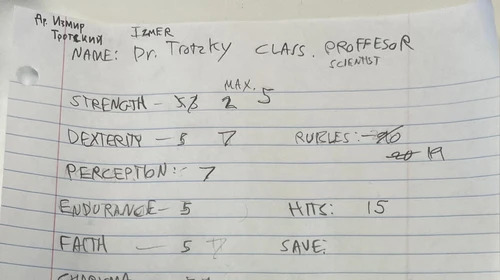 Др. Измир
Тротский
IZMER
NAME: Dr. Trotzky CLASS. PROFFESOR
SCIENTIST
MAX.
STRENGTH - 2 5
DEXTERITY - 5 7 RUBLES: 19
PERCEPTION: - 7
ENDURANCE - 5 HITS: 15
FAITH - 5 7 SAVE:
CHARISMA